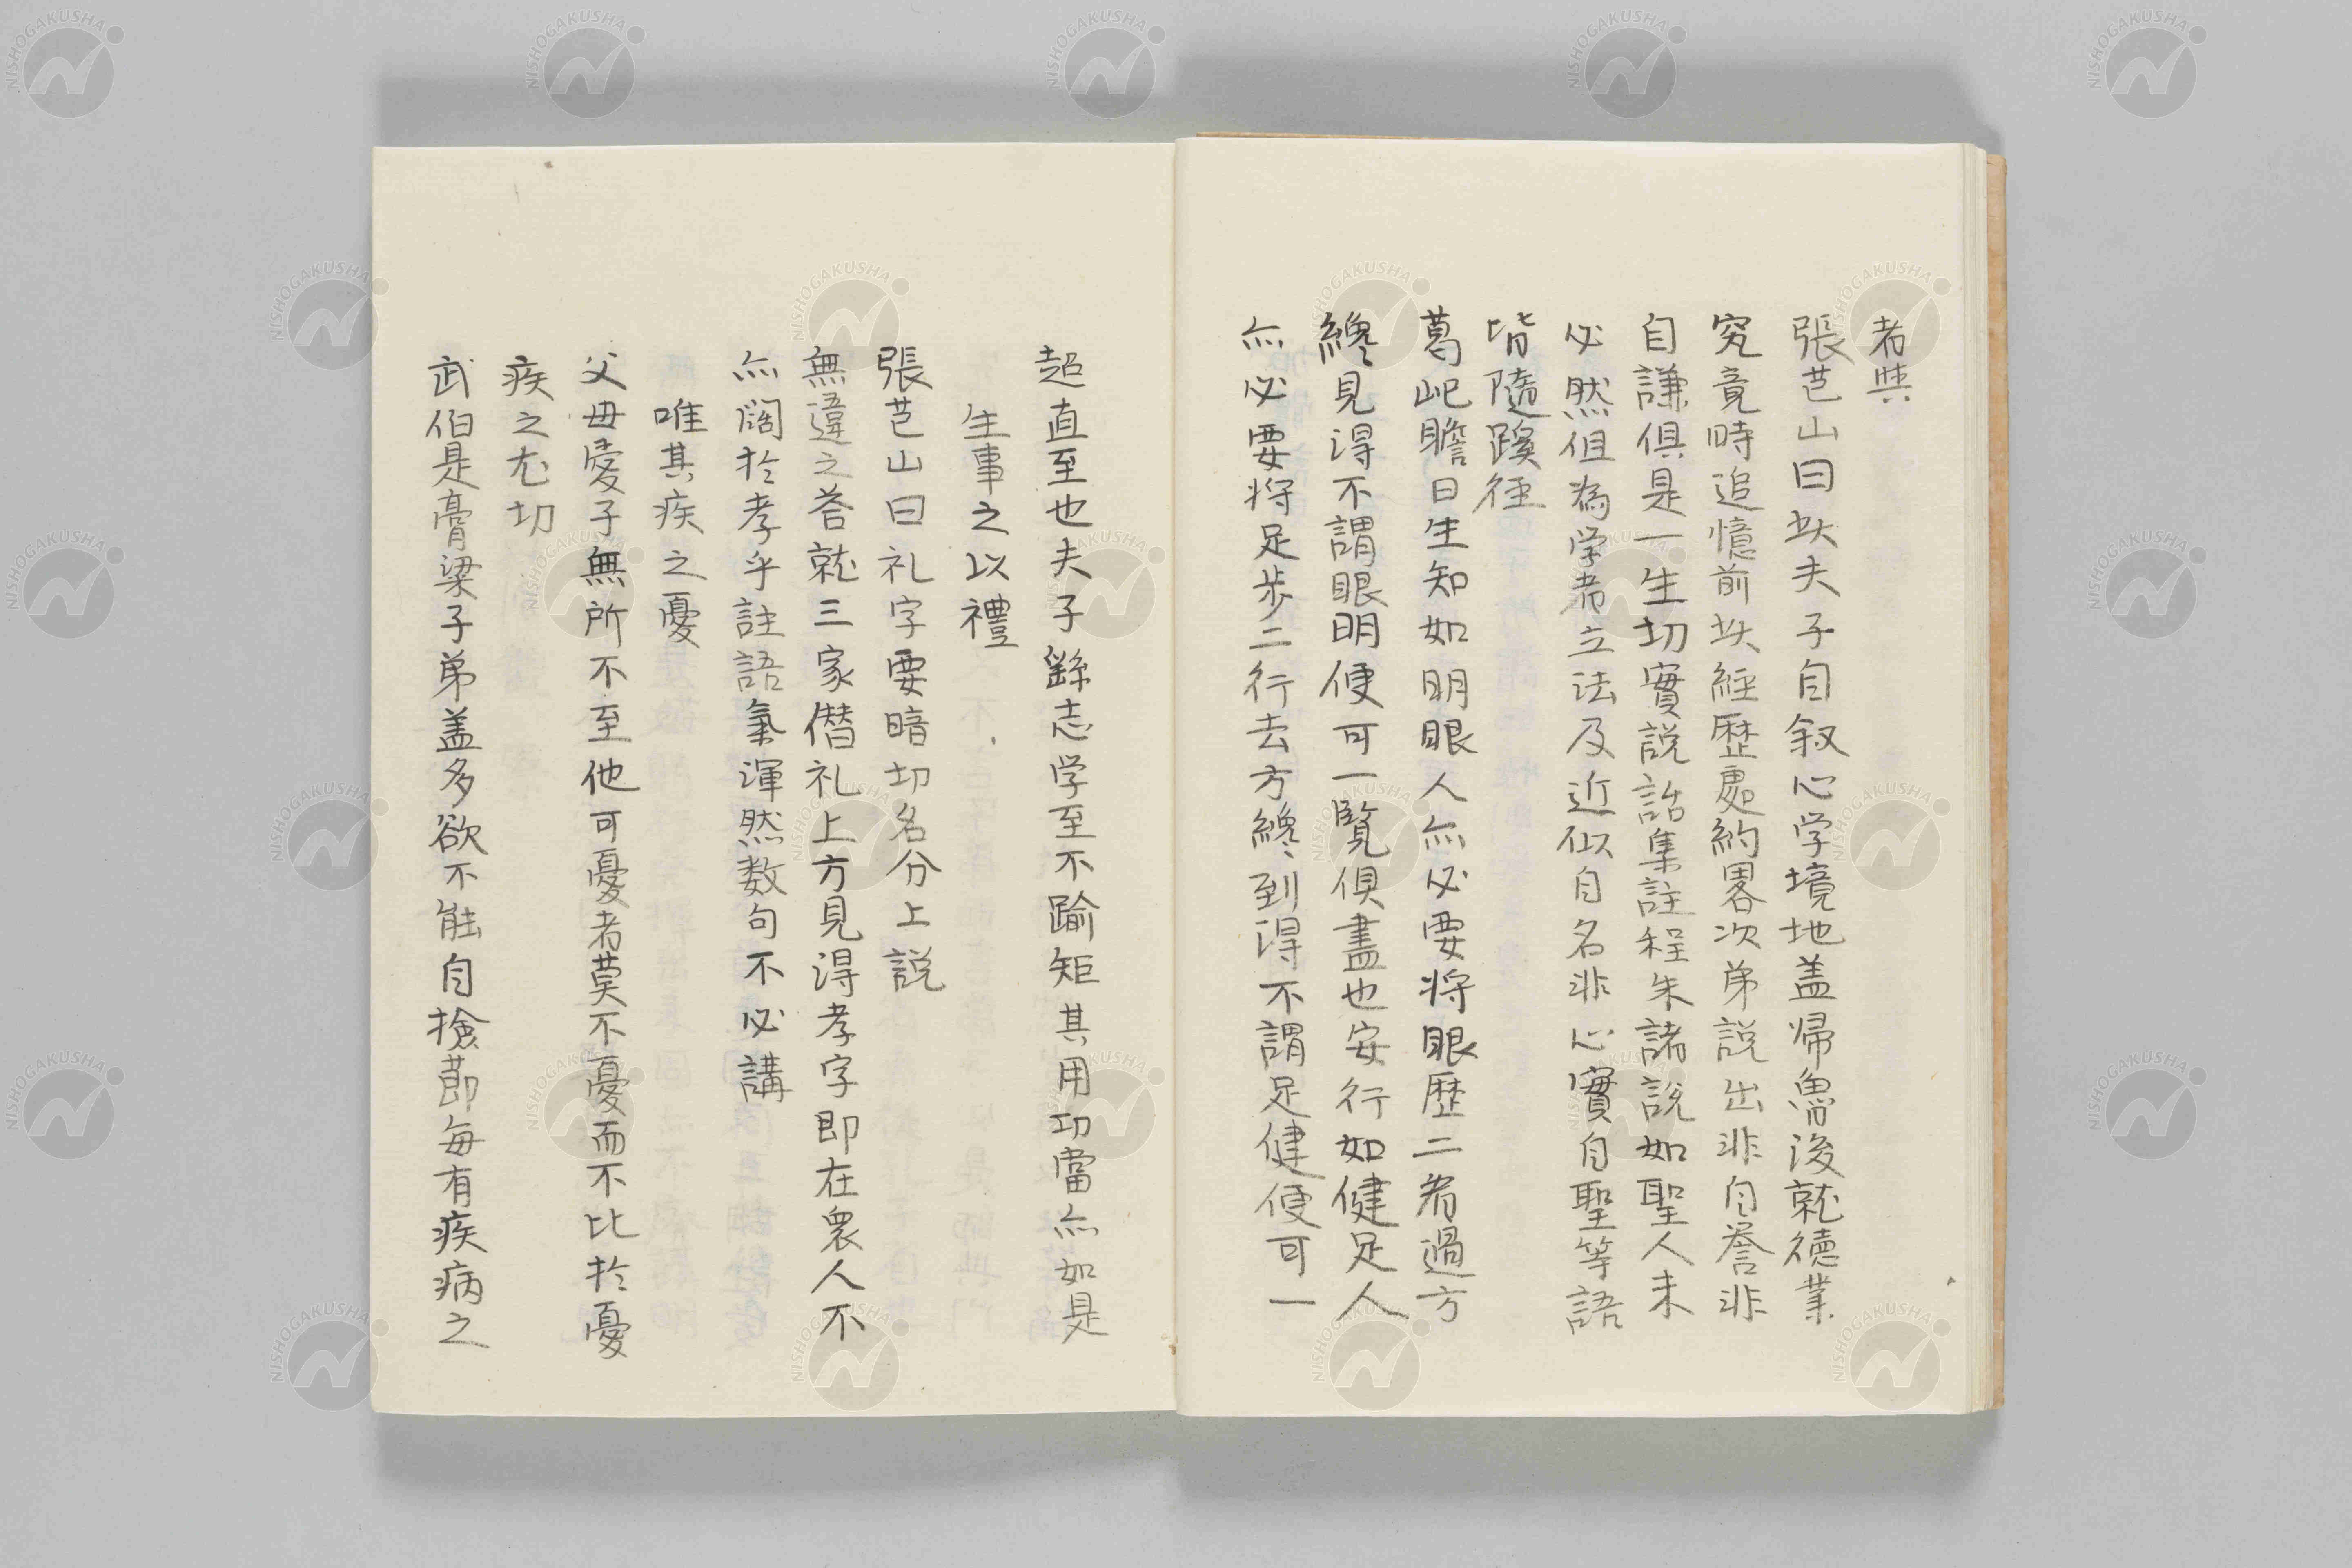 者與
張芑山曰此夫子自叙心学境地盖帰魯後就徳業
究竟時追憶前此經歴處約畧次弟説出非自誉非
自謙俱是一生切實説話集註程朱諸説如聖人未
必然但為学者立法及近似自名非心實自聖等語
皆隨蹊徑
葛屺瞻曰生知如明眼人亦必要将眼歴二看過方
纔見得不謂眼明便可一覧俱盡也安行如健足人
亦必要将足歩二行去方纔到得不謂足健便可一
超直至也夫子繇志学至不踰矩其用功當亦如是
生事之以禮
張芑山曰礼字要暗切名分上説
無違之答就三家僭礼上方見得孝字即在衆人不
亦闊於孝乎註語氣渾然数句不必講
唯其疾之憂
父母愛子無所不至他可憂者莫不憂而不比於憂
疾之尤切
武伯是膏粱子弟盖多欲不能自撿莭毎有疾病之
NISHOGAKUSHA